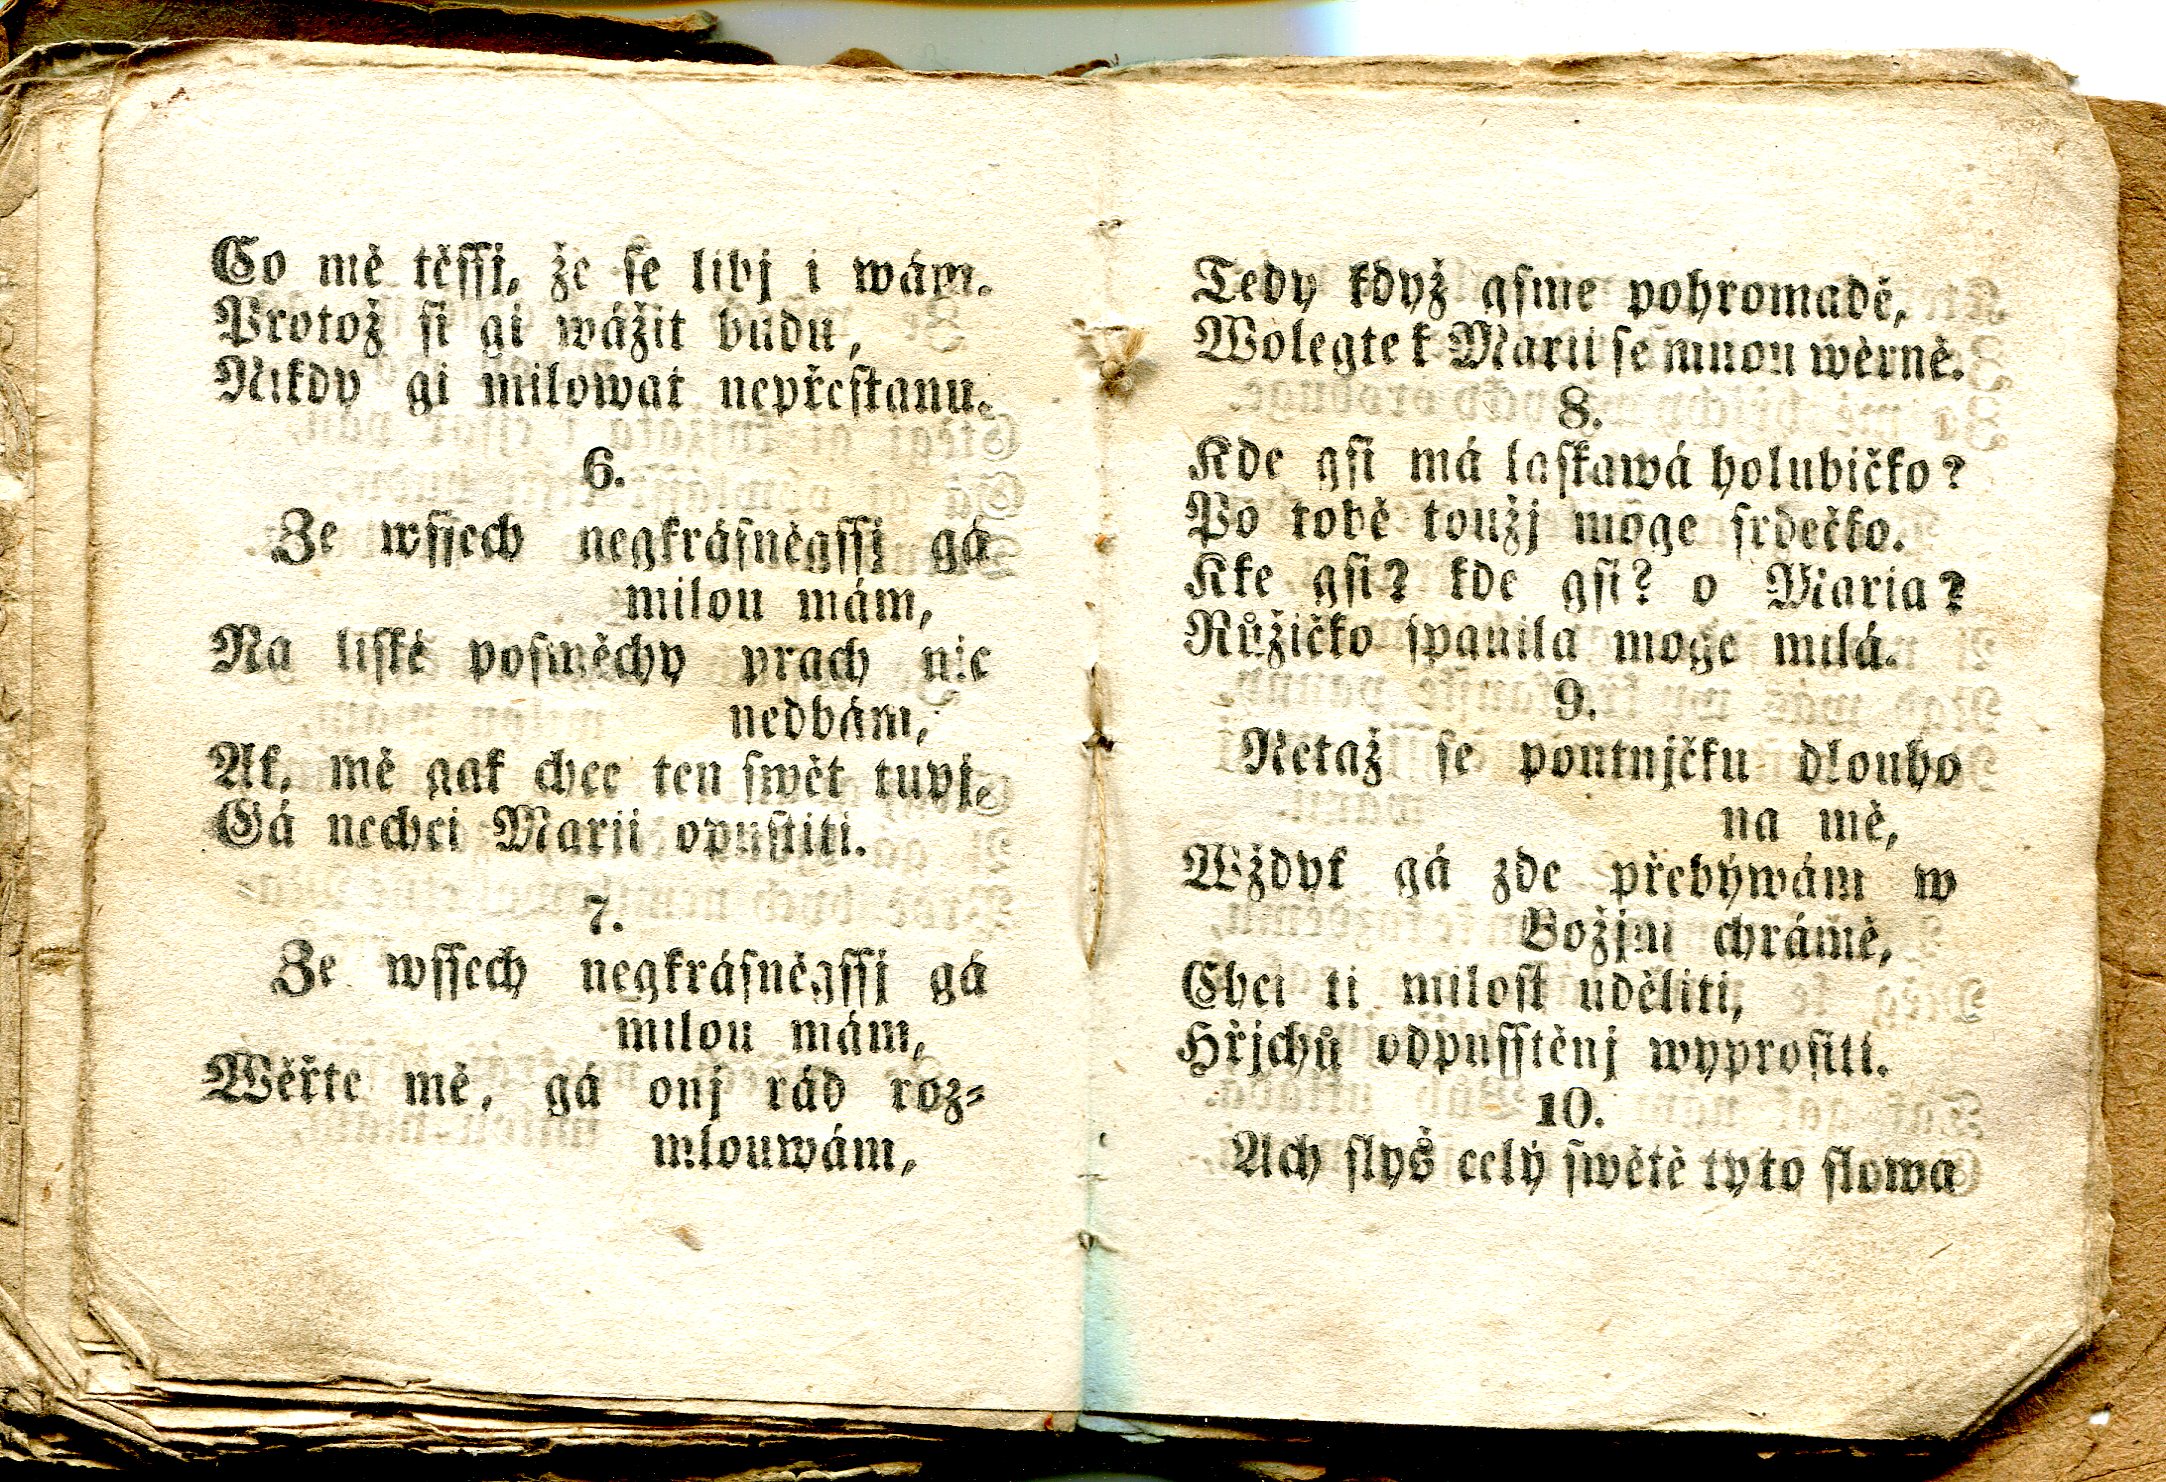 Co mě těssj, že se libj i wám.
Protož si gi wážit budu,
Nikdy gi milowat nepřestanu.
6.
Ze wssech negkrásněgssj gá
milou mám,
Na liské posměchy prach nic
nedbám,
At, mě gak chce ten swět tupj,
Gá nechci Marii opustiti.
7.
Ze wssech negkrásněgssj gá
milou mám,
Wěřte mě, gá onj rád roz=
mlouwám,
Tedy když gsme pohromadě,
Wolegte k Marii se mnou wěrně.
8.
Kde gsi má laskawá holubičko?
Po tobě toužj moge srdečko.
Kke gsi? kde gsi? o Maria?
Růžičko spanila moge milá.
9.
Netaž se poutnjčku dlouho
na mě,
Wždyt gá zde přebýwám w
Božjm chrámě,
Chci ti milost uděliti,
Hřjchů odpusstěnj wyprositi.
10.
Ach slyš celý swětě tyto slowa